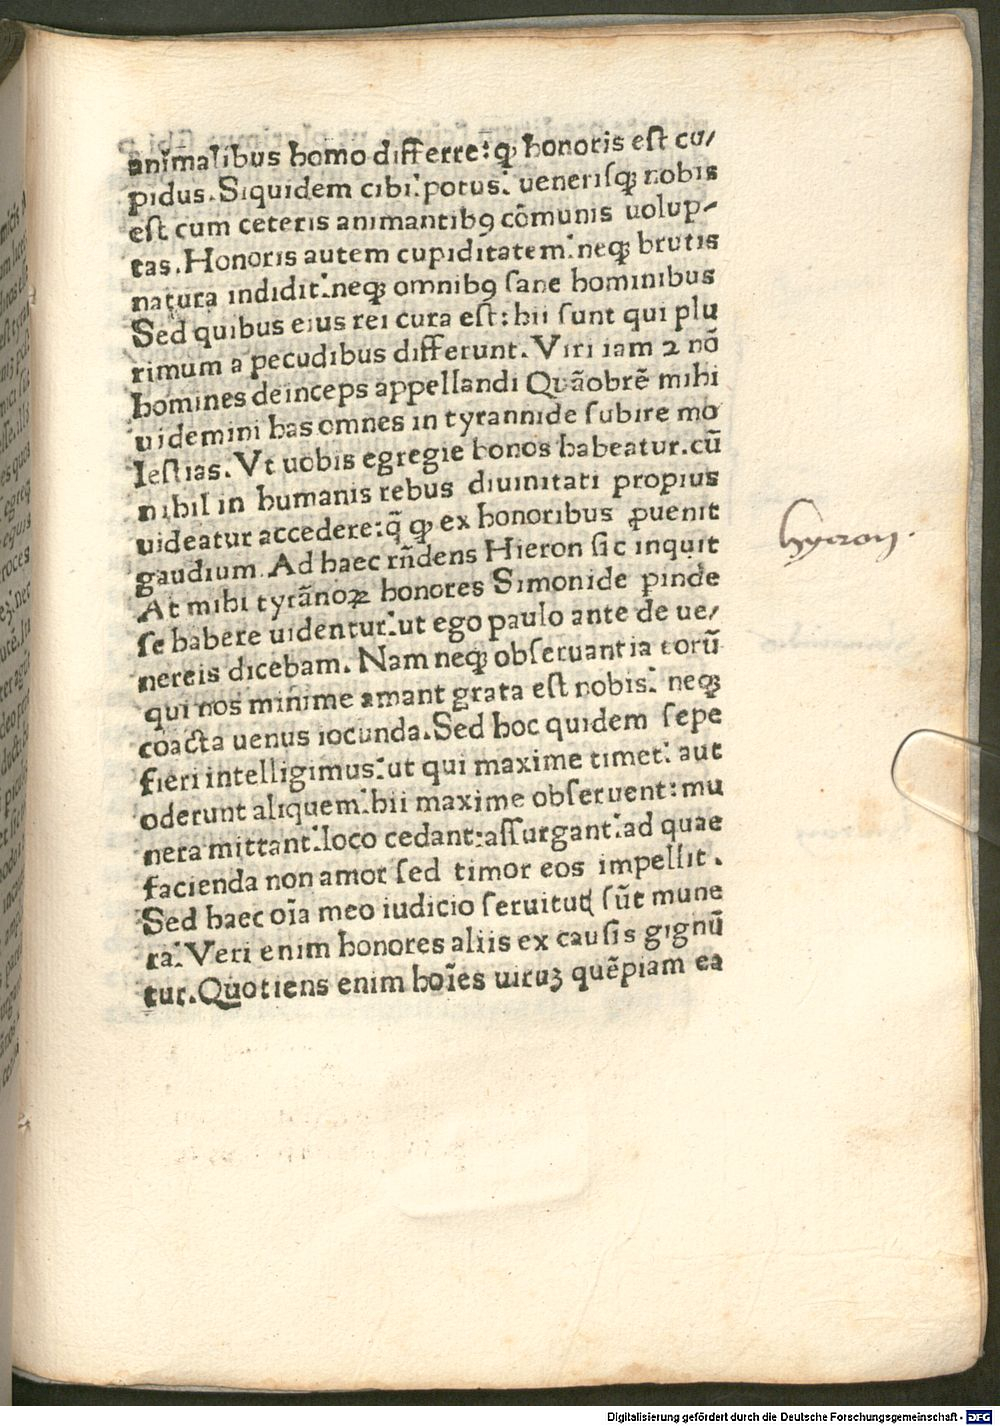 animalibus homo differre: ꝙ honoris est cu/
pidus. Siquidem cibi: potus: uenerisqꝫ nobis
est cum ceteris animantibꝯ cōmunis uolup-
tas. Honoris autem cupiditatem: neqꝫ brutis
natura indidit: neqꝫ omnibꝯ sane hominibus
Sed quibus eius rei cura est: hii sunt qui plu
rimum a pecudibus differunt. Viri iam ⁊ nō
homines deinceps appellandi Quāobrē mihi
uidemini has omnes in tyrannide subire mo
lestias. Vt uobis egregie honos habeatur. cū
nihil in humanis rebus diuinitati propius
uideatur accedere: q̄ ꝙ ex honoribus ꝓuenit
gaudium. Ad haec rn̄dens Hieron sic inquit
At mihi tyrānoꝝ honores Simonide pinde
se habere uidentur: ut ego paulo ante de ue/
nereis dicebam. Nam neqꝫ obseruantia eorū
qui nos minime amant grata est nobis: neqꝫ
coacta uenus iocunda. Sed hoc quidem sepe
fieri intelligimus: ut qui maxime timet: aut
oderunt aliquem: hii maxime obseruent: mu
nera mittant: loco cedant: assurgant: ad quae
facienda non amor sed timor eos impellit.
Sed haec oīa meo iudicio seruitutꝭ sūt mune
ra: Veri enim honores aliis ex causis gignū
tur. Quotiens enim hoīes uiruꝫ quēpiam ea
hyeron.
Digitalisierung gefördert durch die Deutsche Forschungsgemeinschaft - DFG